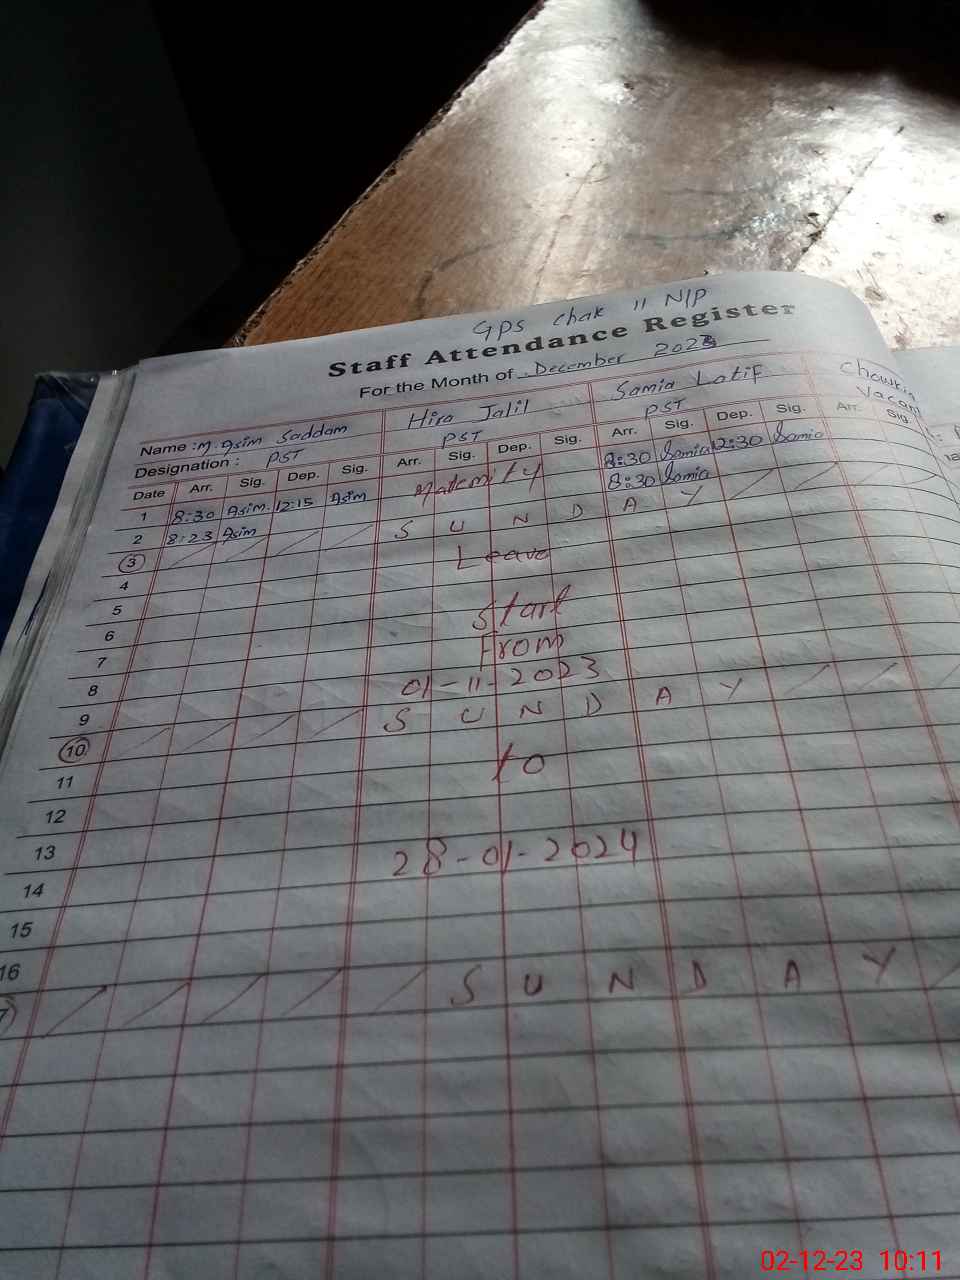 GPS chak 11 N/P
Staff Attendance Register
For the Month of December 2023
Name : M. Asim Saddam Hira Jalil Samia Latif Chowki
Designation : PST PST PST Vacant
Date Arr. Sig. Dep. Sig. Arr. Sig. Dep. Sig. Arr. Sig. Dep. Sig. Arr. Sig.
1 8:30 Asim 12:15 Asim Maternity 8:30 Samia 12:30 Samia
2 8:23 Asim 8:30 Samia
3 S U N D A Y
4 Leave
5
6 Start
7 From
8 01-11-2023
9
10 S U N D A Y
11 to
12
13
14 28-01-2024
15
16
7 S U N D A Y
02-12-23 10:11